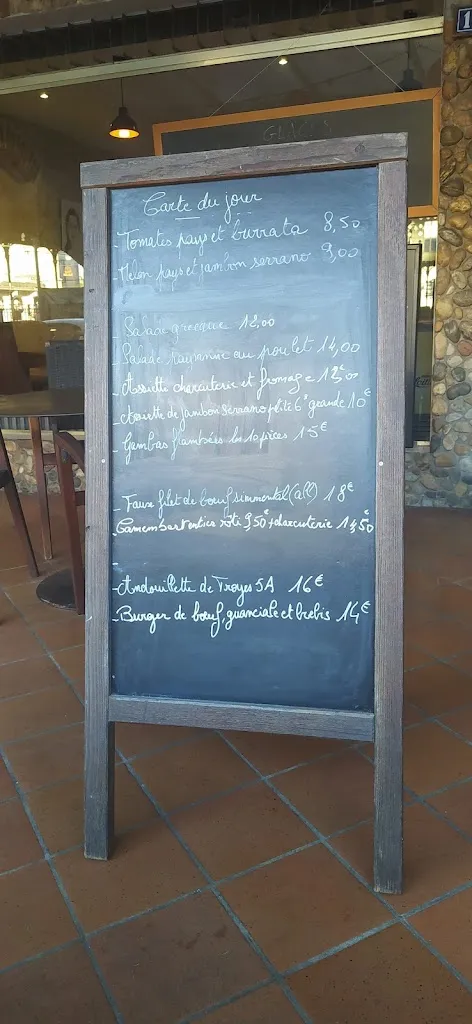 Carte du jour
- Tomates pays et burrata 8,50
- Melon pays et jambon serrano 9,00
- Salade grecque 12,00
- Salade paysanne au poulet 14,00
- Assiette charcuterie et fromage 12€00
- Assiette de jambon serrano ptite 6€ grande 10€
- Gambas flambées les 10 pièces 15€
- Faux filet de boeuf simmental (all) 18€
- Camembert entier roti 9,50€ + charcuterie 14,50€
- Andouillette de Troyes 5A 16€
- Burger de boeuf, guanciale et brebis 14€
1